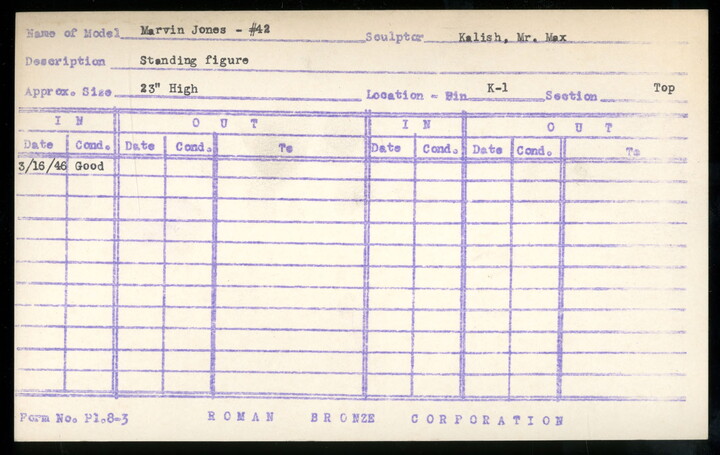 Name of Model Marvin Jones - #42 Sculptor Kalish, Mr. Max
Description Standing figure
Approx. Size 23" High Location - Bin K-1 Section Top
I N O U T I N O U T
Date Cond. Date Cond. To Date Cond. Date Cond. To
3/16/46 Good
Form No. P1.8-3 ROMAN BRONZE CORPORATION